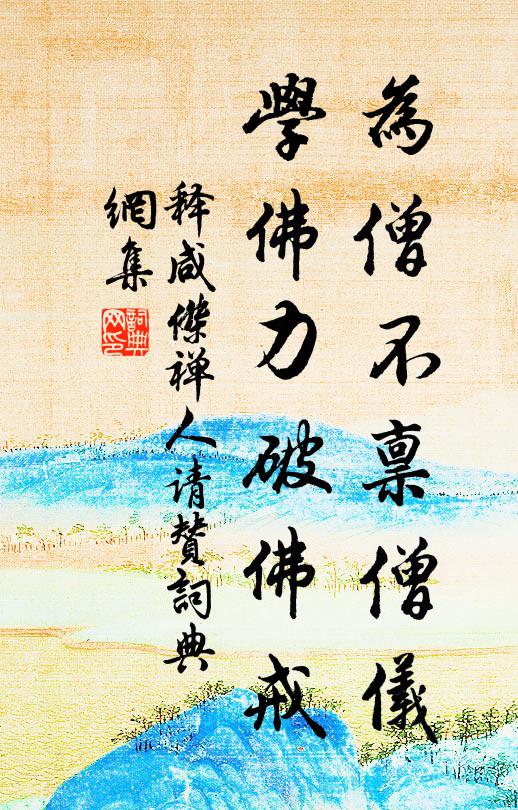 為僧不禀僧儀
學佛力破佛戒
释咸傑禅人请赞詞典
網集
詞典
网印